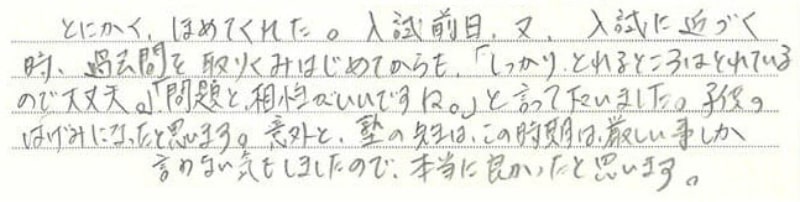 とにかく、ほめてくれた。入試前日、又、入試に近づく
時、過去問を取りくみはじめてからも、「しっかりとれるところはとれている
ので大丈夫。」「問題と、相性がいいですね。」と言って下さいました。子供の
はげみになったと思います。意外と、塾の先生は、この時期は、厳しい事しか
言わない気もしましたので、本当に良かったと思います。